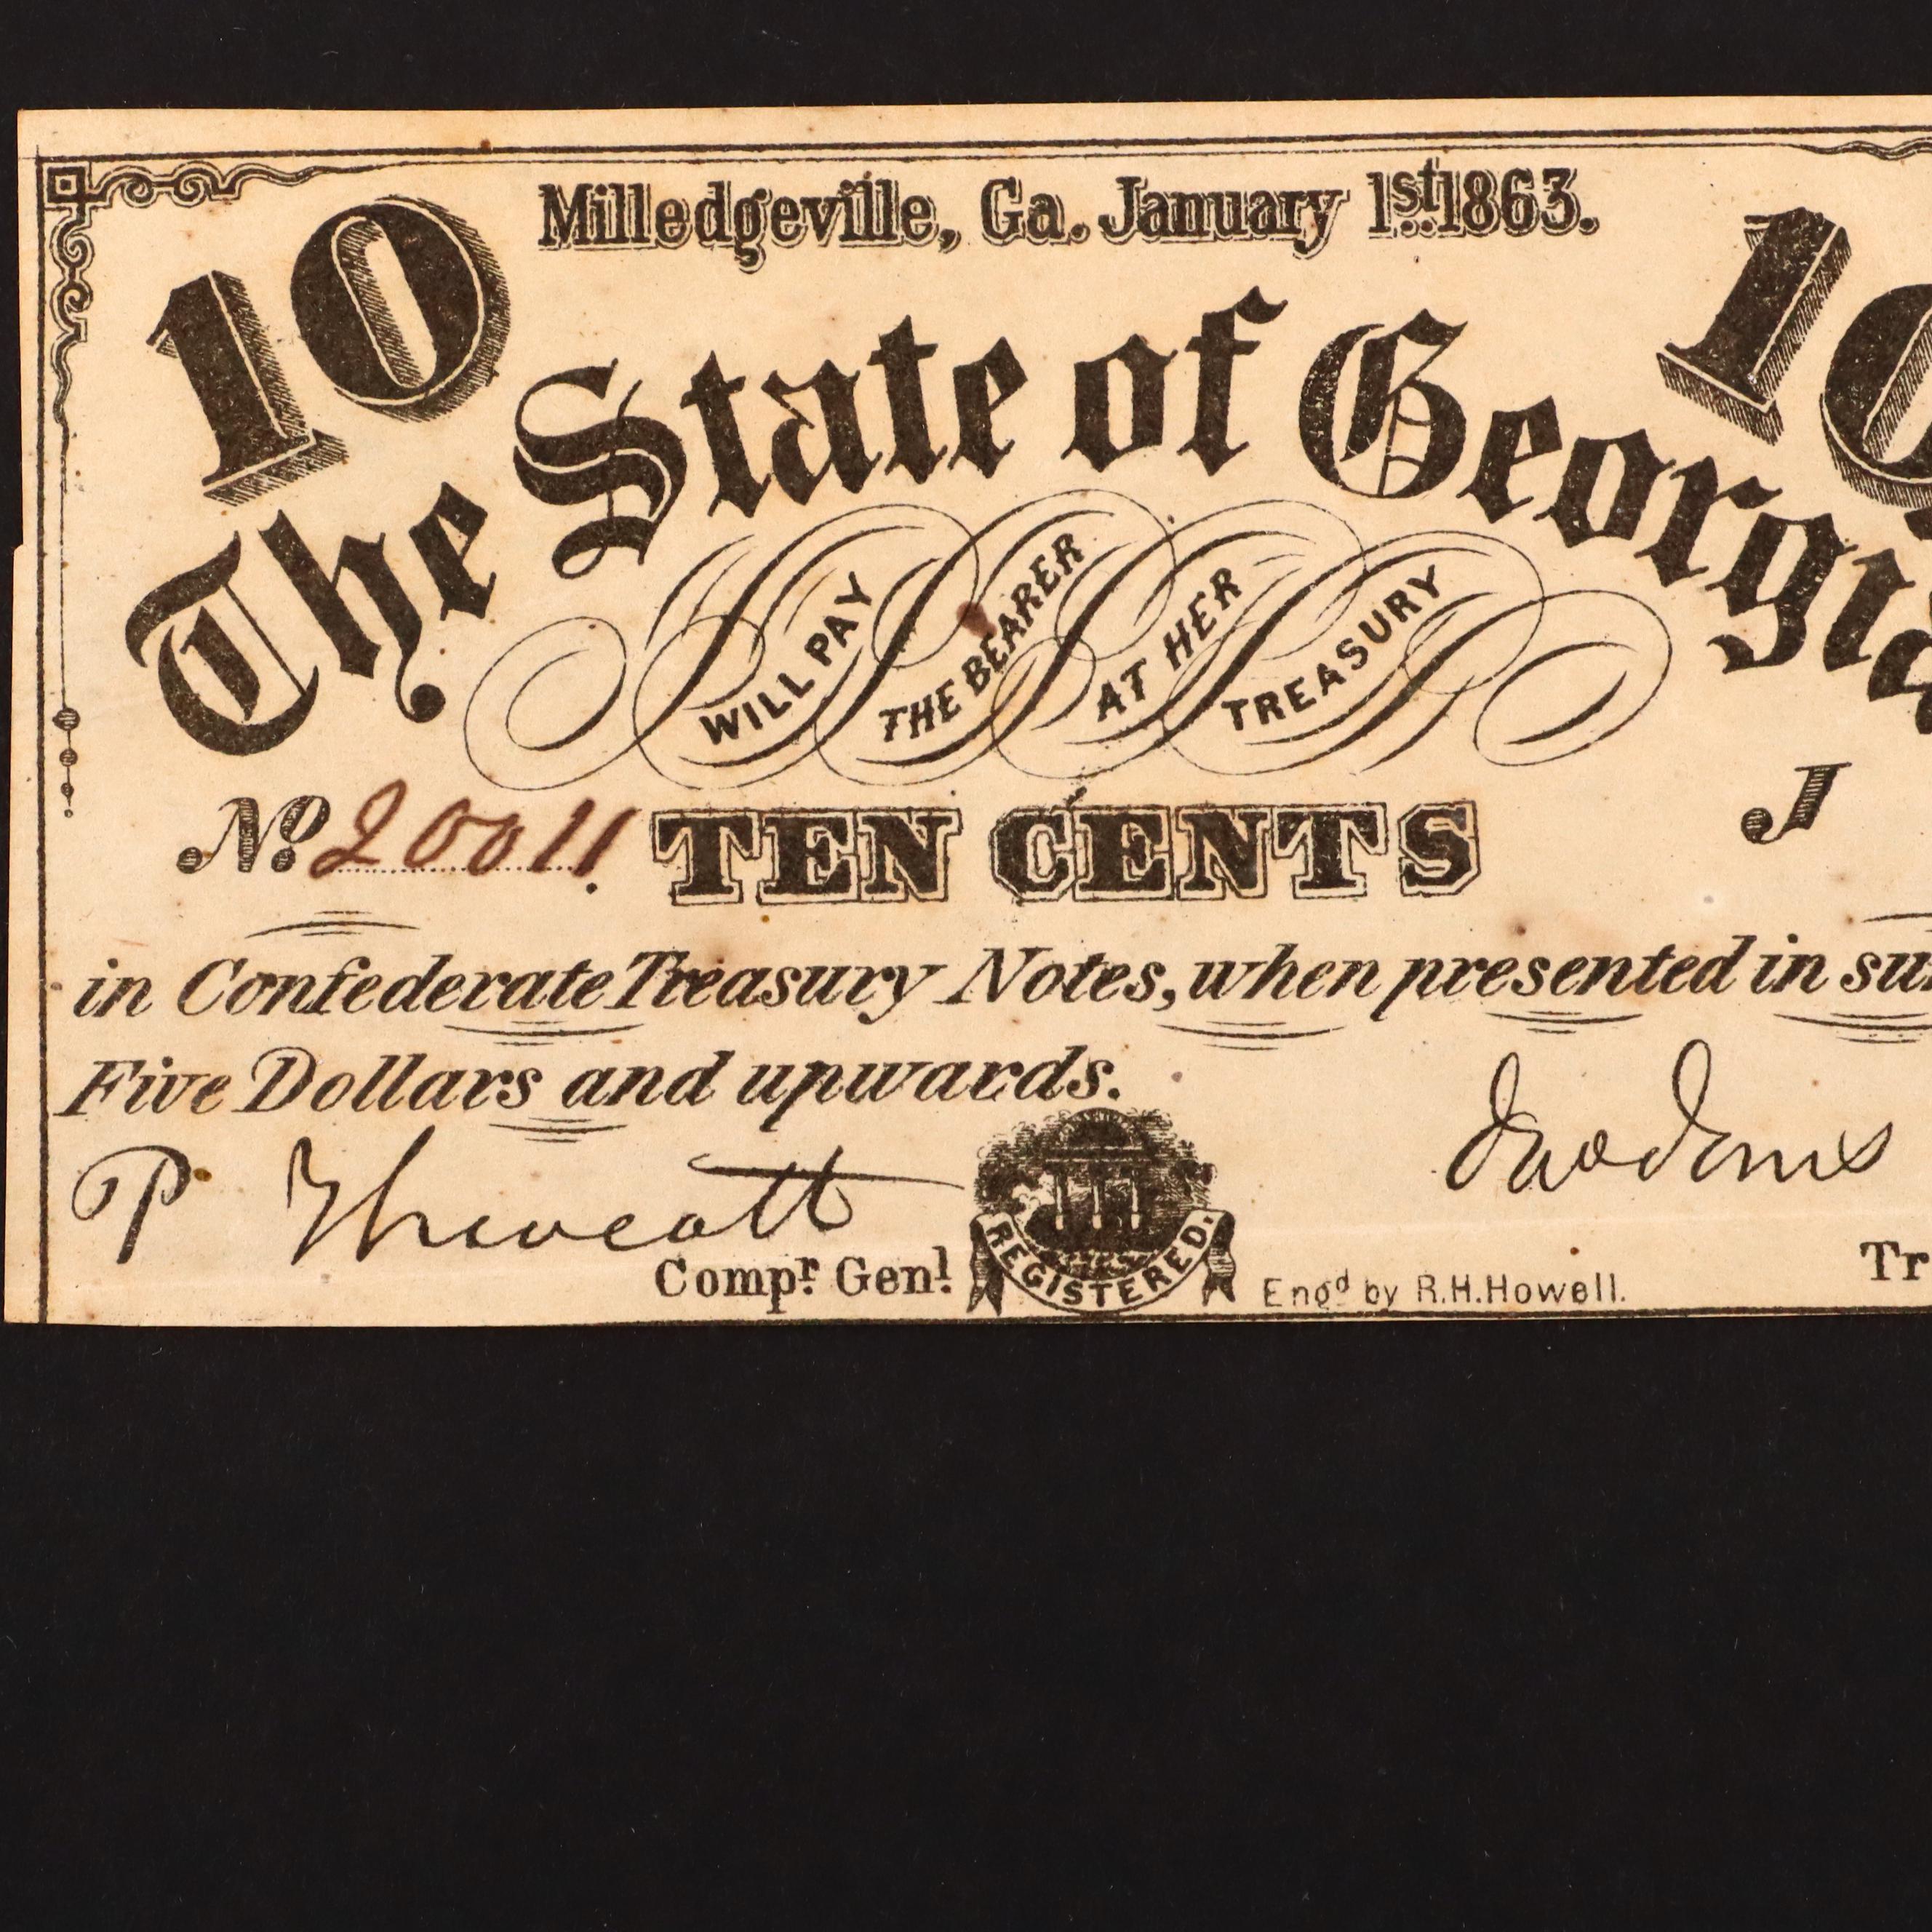 Milledgeville, Ga. January 1st 1863.
10
10
The State of Georgia
WILL PAY
THE BEARER
AT HER
TREASURY
No. 20011 TEN CENTS J
in Confederate Treasury Notes, when presented in su
Five Dollars and upwards.
P Thweatt
Jno Jones
Compr. Genl.
REGISTERED.
Engd by R.H.Howell.
Tr